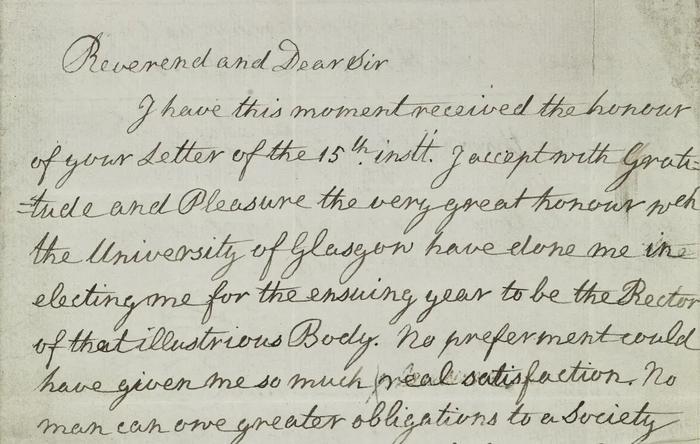 Reverend and Dear Sir
I have this moment received the honour
of your Letter of the 15th instt. I accept with Grati=
=tude and Pleasure the very great honour wch
the University of Glasgow have done me in
electing me for the ensuing year to be the Rector
of that illustrious Body. No preferment could
have given me so much real satisfaction. No
man can owe greater obligations to a Society